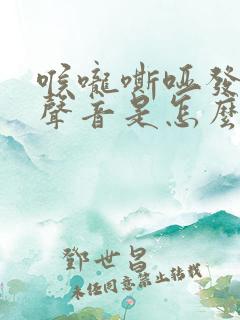 喉嚨嘶啞發
聲音是怎麼
鄧世昌
未经同意禁止转载